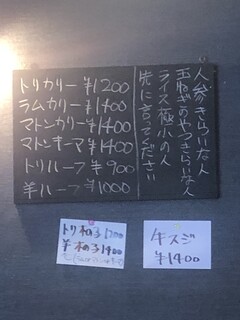 人参きらいな人
玉ねぎのやつきらいな人
ライス極小の人
先に言ってください
トリカリー ¥1200
ラムカリー ¥1400
マトンカリー ¥1400
マトンキーマ ¥1400
トリハーフ ¥900
羊ハーフ ¥1000
トリ 1200
羊 1400
牛スジ
¥1400